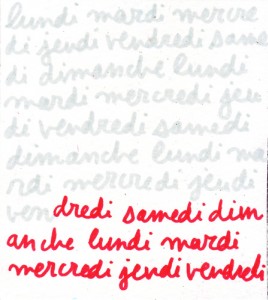 lundi mardi mercre
di jeudi vendredi same
di dimanche lundi
mardi mercredi jeu
di vendredi samedi
dimanche lundi ma
rdi mercredi jeudi
vendredi samedi dim
anche lundi mardi
mercredi jeudi vendredi